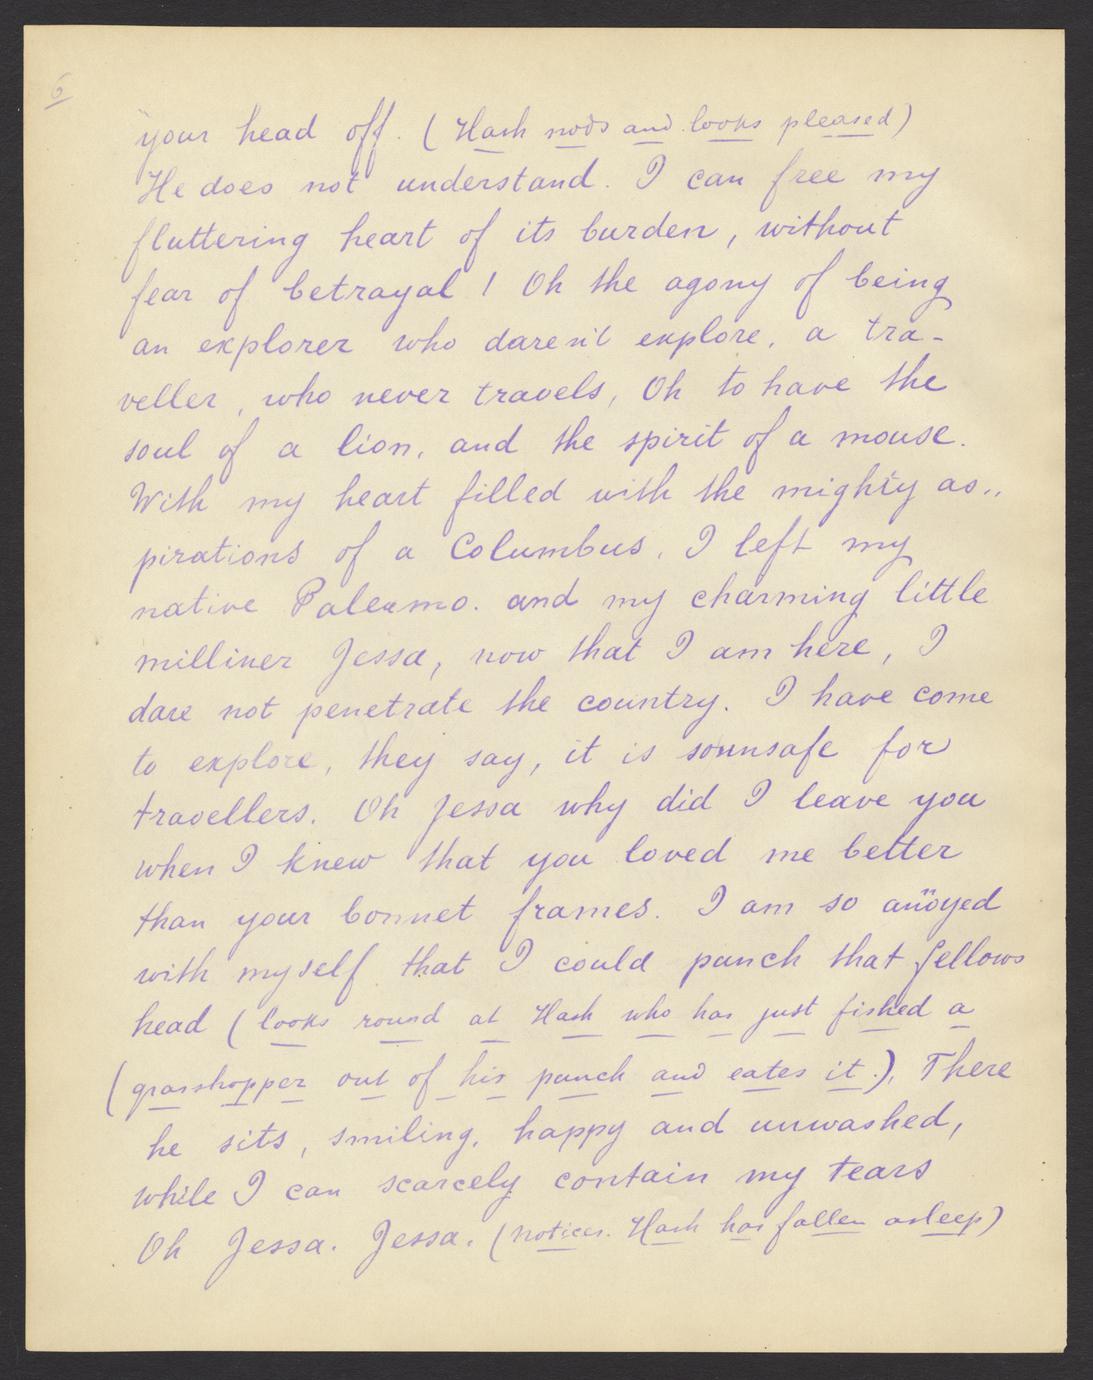 6
your head off. (Hash nods and looks pleased)
He does not understand. I can free my
fluttering heart of its burden, without
fear of betrayal! Oh the agony of being
an explorer who daren't explore, a tra-
veller, who never travels, Oh to have the
soul of a lion, and the spirit of a mouse.
With my heart filled with the mighty as..
pirations of a Columbus, I left my
native Palermo. and my charming little
milliner Jessa, now that I am here, I
dare not penetrate the country. I have come
to explore, they say, it is so unsafe for
travellers. Oh Jessa why did I leave you
when I knew that you loved me better
than your bonnet frames. I am so anoyed
with myself that I could punch that fellows
head (looks round at Hash who has just fished a
(grasshopper out of his punch and eates it.). There
he sits, smiling, happy and unwashed,
while I can scarcely contain my tears
Oh Jessa. Jessa. (notices. Hash has fallen asleep)